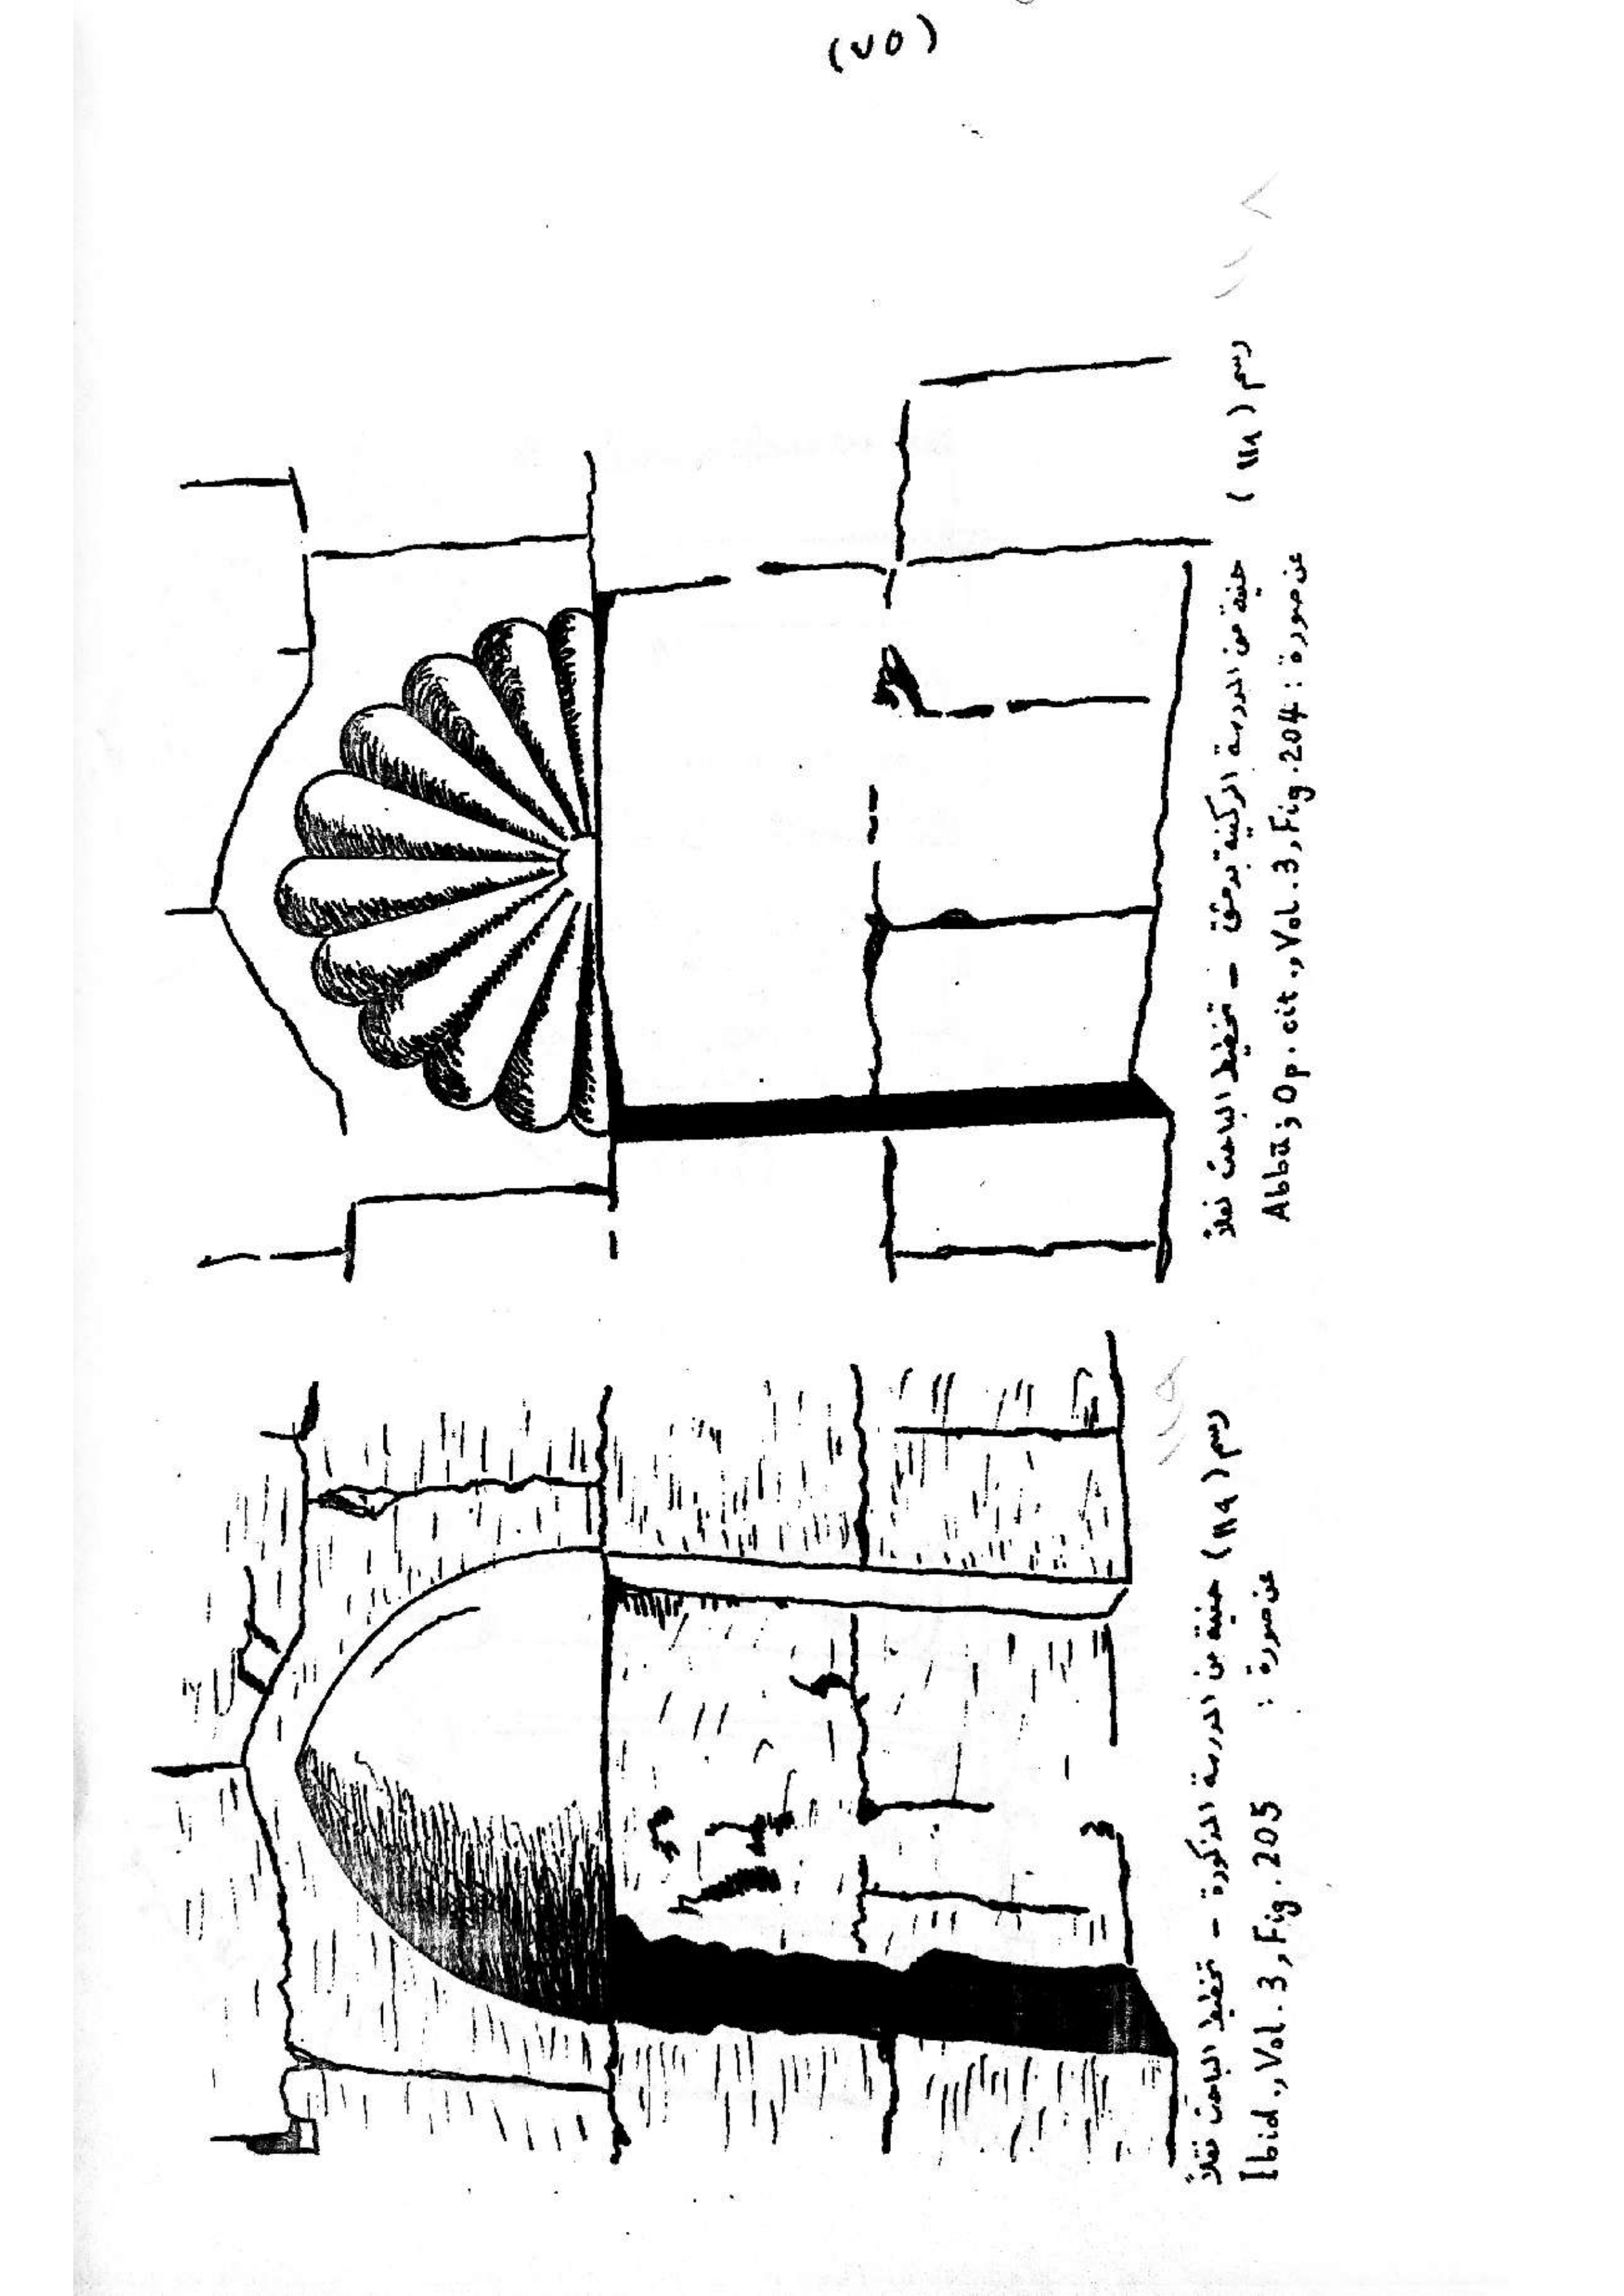 (٧٥)
رسم (١١٨) حنية من المدرسة الركنية بدمشق – تخطيط الباحث نقلاً
عن صورة : Abbū; Op. cit., Vol. 3, Fig. 204
رسم (١١٩) حنية من المدرسة المذكورة – تخطيط الباحث نقلاً
عن صورة : Ibid., Vol. 3, Fig. 205